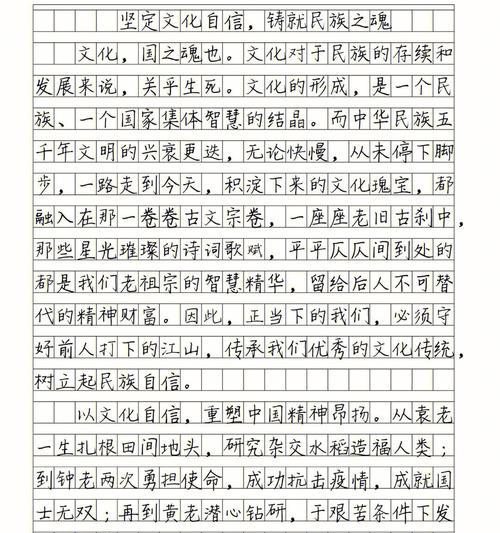 坚定文化自信，铸就民族之魂
文化，国之魂也。文化对于民族的存续和
发展来说，关乎生死。文化的形成，是一个民
族、一个国家集体智慧的结晶。而中华民族五
千年文明的兴衰更迭，无论快慢，从未停下脚
步，一路走到今天，积淀下来的文化瑰宝，都
融入在那一卷卷古文宗卷，一座座老旧古刹中，
那些星光璀璨的诗词歌赋，平平仄仄间到处的
都是我们老祖宗的智慧精华，留给后人不可替
代的精神财富。因此，正当下的我们，必须守
好前人打下的江山，传承我们优秀的文化传统，
树立起民族自信。
以文化自信，重塑中国精神昂扬。从袁老
一生扎根田间地头，研究杂交水稻造福人类；
到钟老两次勇担使命，成功抗击疫情，成就国
士无双；再到黄老潜心钻研，于艰苦条件下发